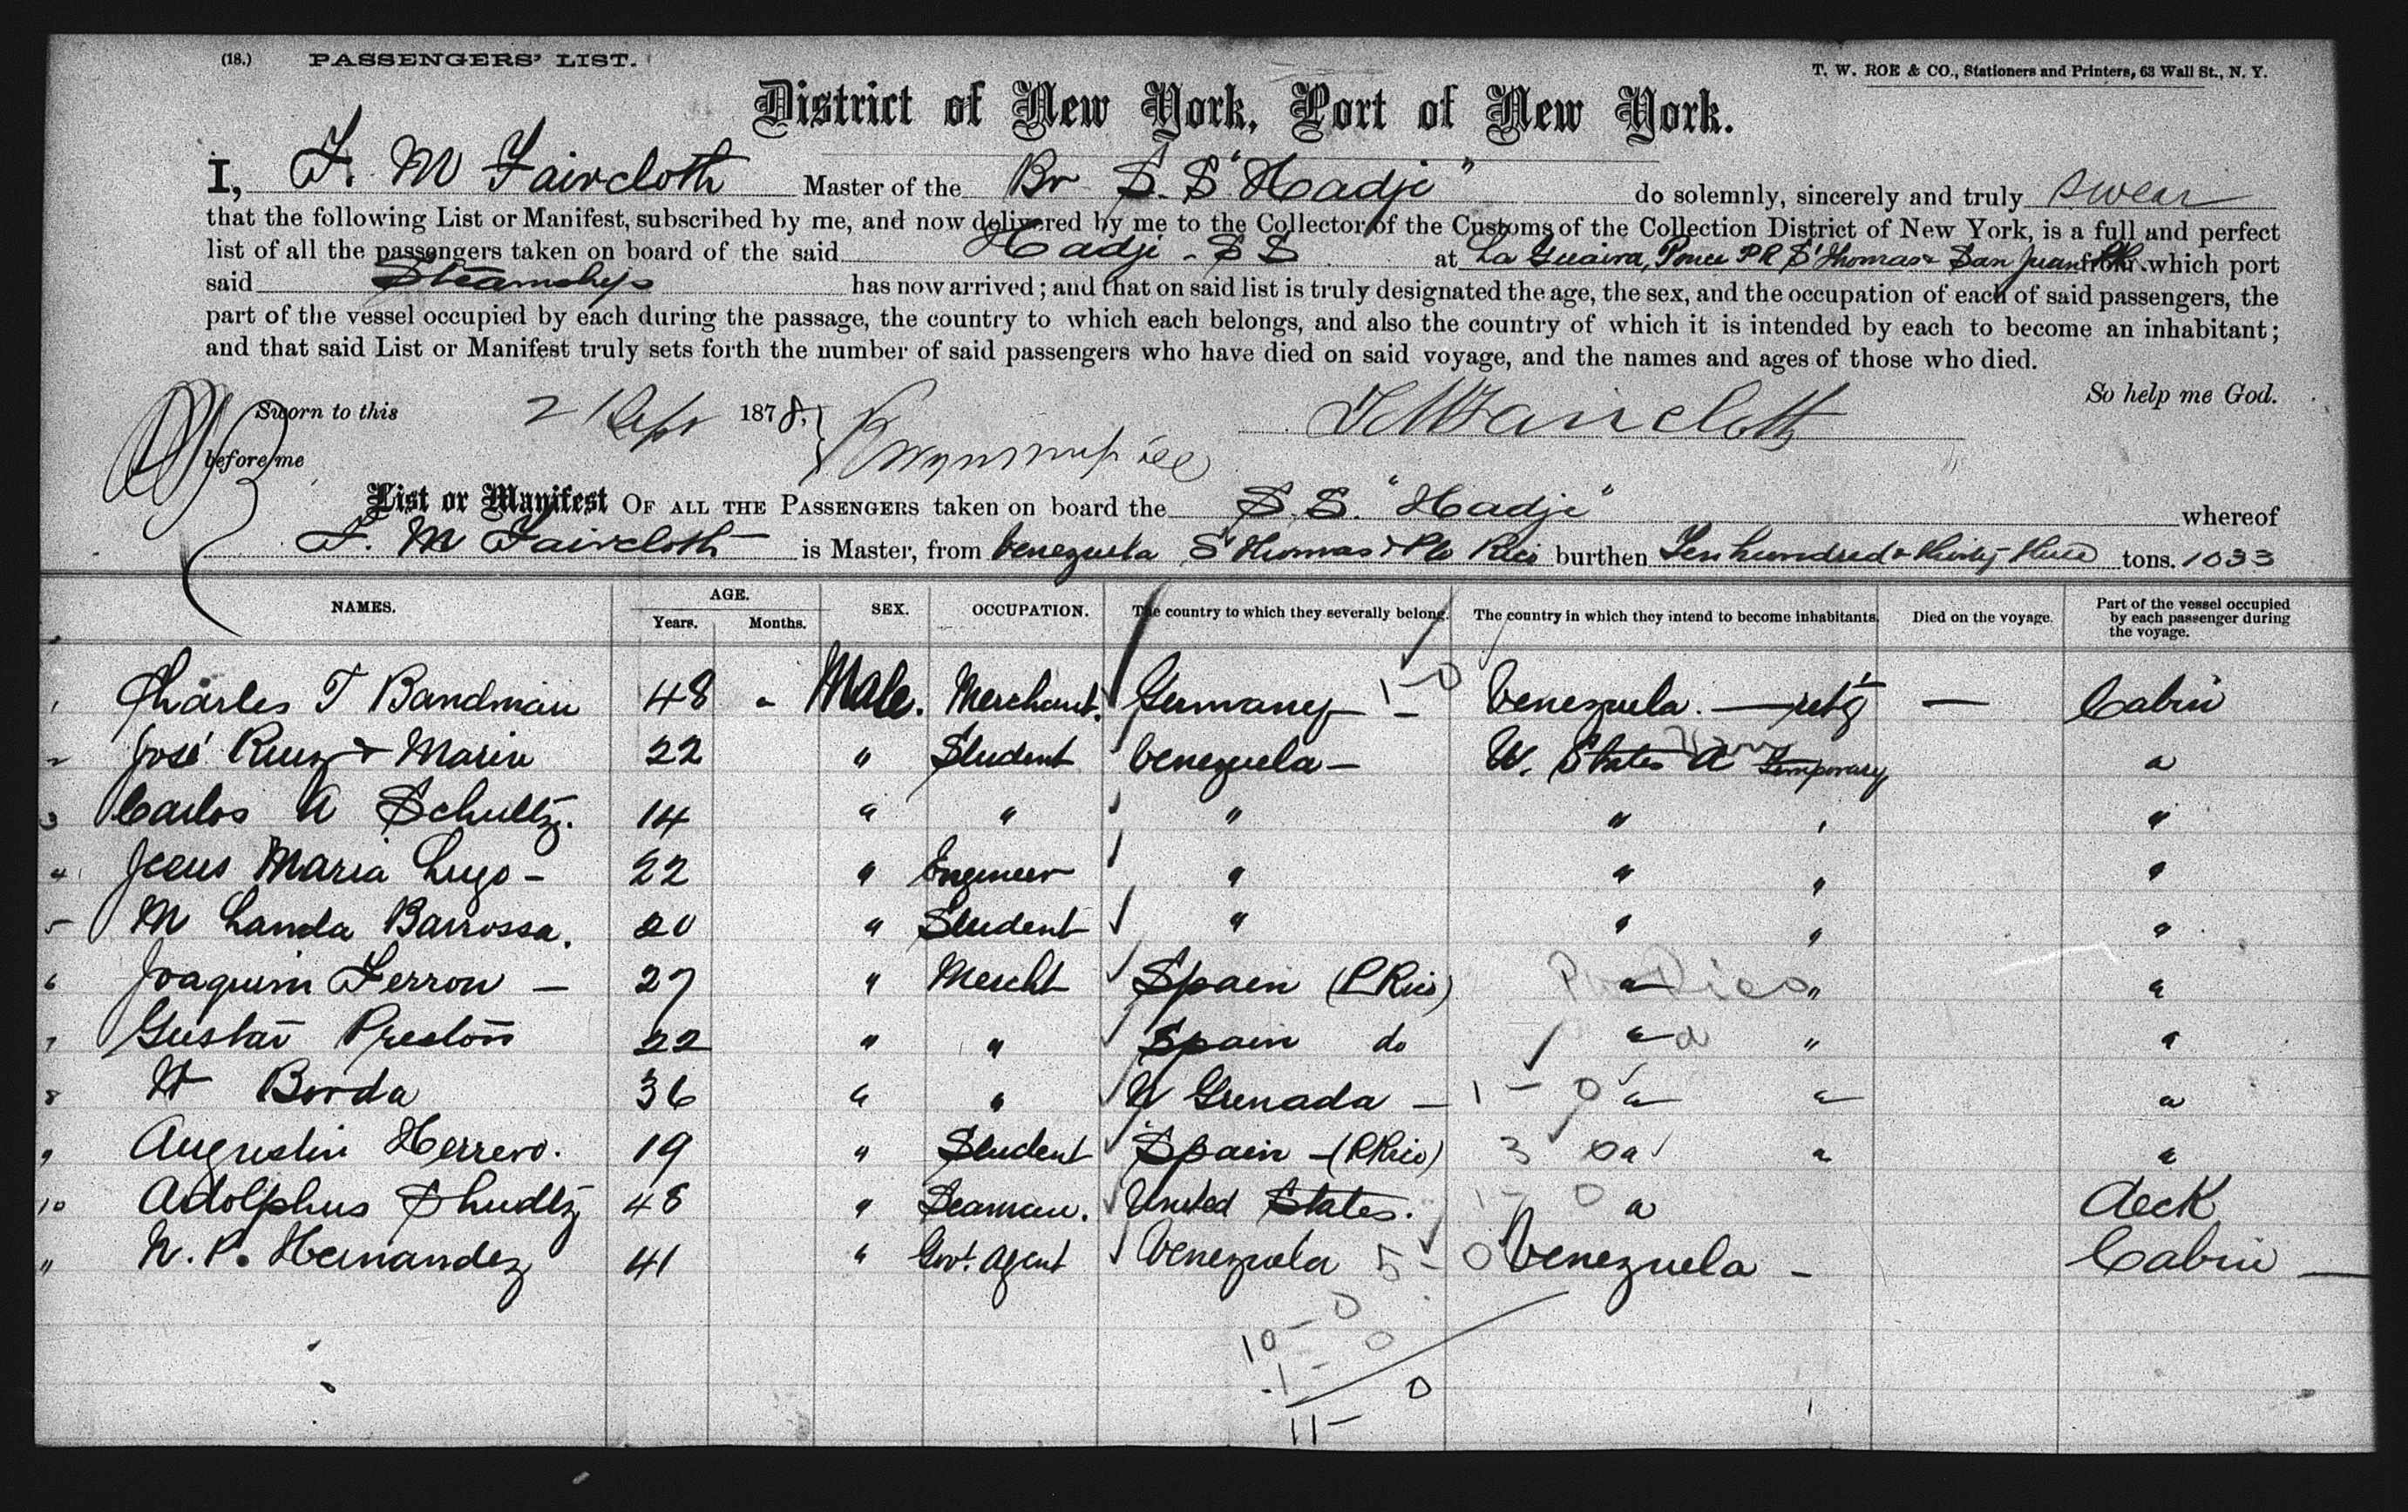 (18.) PASSENGERS' LIST.
T. W. ROE & CO., Stationers and Printers, 63 Wall St., N. Y.
District of New York, Port of New York.
I, F. M Faircloth Master of the Br S. S "Hadji" do solemnly, sincerely and truly swear
that the following List or Manifest, subscribed by me, and now delivered by me to the Collector of the Customs of the Collection District of New York, is a full and perfect
list of all the passengers taken on board of the said Hadji - S S at La Guaira, Ponce P R St Thomas & San Juan PR from which port
said Steamship has now arrived; and that on said list is truly designated the age, the sex, and the occupation of each of said passengers, the
part of the vessel occupied by each during the passage, the country to which each belongs, and also the country of which it is intended by each to become an inhabitant;
and that said List or Manifest truly sets forth the number of said passengers who have died on said voyage, and the names and ages of those who died.
So help me God.
Sworn to this 2 Sept 1878. F M Faircloth
before me
List or Manifest OF ALL THE PASSENGERS taken on board the S. S. "Hadji" whereof
F. M Faircloth is Master, from Venezuela St Thomas & Pto Rico burthen Ten hundred & thirty three tons. 1033
NAMES. AGE. Years. Months. SEX. OCCUPATION. The country to which they severally belong. The country in which they intend to become inhabitants. Died on the voyage. Part of the vessel occupied by each passenger during the voyage.
1 Charles T Bandman 48 " Male. Merchant. Germany 1-0 Venezuela. — — Cabin
2 José Ruiz & Marin 22 " Student Venezuela — U. States A temporary "
3 Carlos A Schultz. 14 " " " " " "
4 Jesus Maria Lugo - 22 " Engineer " " " "
5 M Landa Barrossa. 20 " Student " " " "
6 Joaquim Ferron — 27 " Mercht Spain (P Rico) " " "
7 Gustav Preston 22 " " Spain do " " "
8 Borda 36 " " N Grenada — 1-0 " " "
9 Augustin Herrero. 19 " Student Spain - (P Rico) 3 0 " " "
10 Adolphus Shudtz 48 " Seaman. United States. 1-0 " deck
11 N. P. Hernandez 41 " Govt. Agent Venezuela 5-0 Venezuela — Cabin —
0
10 - 0
1 - 0
11 -